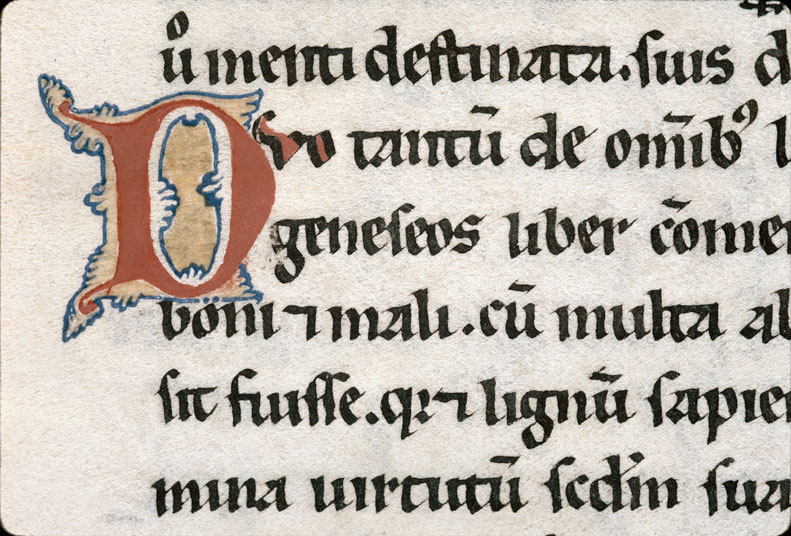 ům̃enti destinata. suis d
Dico tantũ de om̃ib⁹ l
geneseos liber cõme
boni ⁊ mali. cũ multa al
sit fuisse. qꝛ ⁊ lignũ sapie
mina uirtutũ scd̃m sua